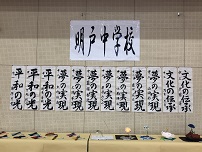 明戸中学校
文化の伝承
文化の伝承
夢の実現
夢の実現
夢の実現
夢の実現
夢の実現
平和の光
平和の光
平和の光